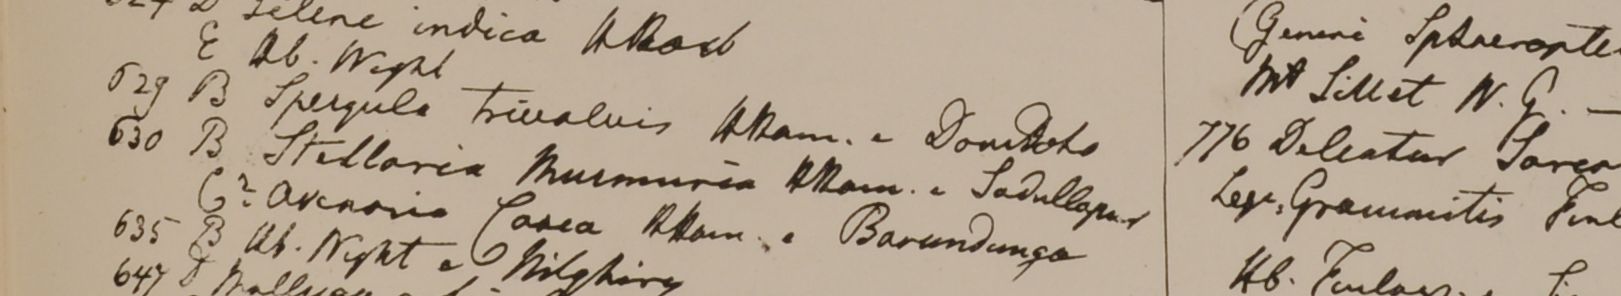 624 D Silene indica HRoxb
E Hb. Wight
629 B Spergula trivalvis HHam. e
630 B Stellaria Murmuria HHam. e Sadullapur
G? Arenaria HHam. e Barundunga
635 B Hb. Wight e Nilghiry
647
(Genini
Mt Sillet N. G. —
776 Deleatur
Lege, Grammitis
Hb.